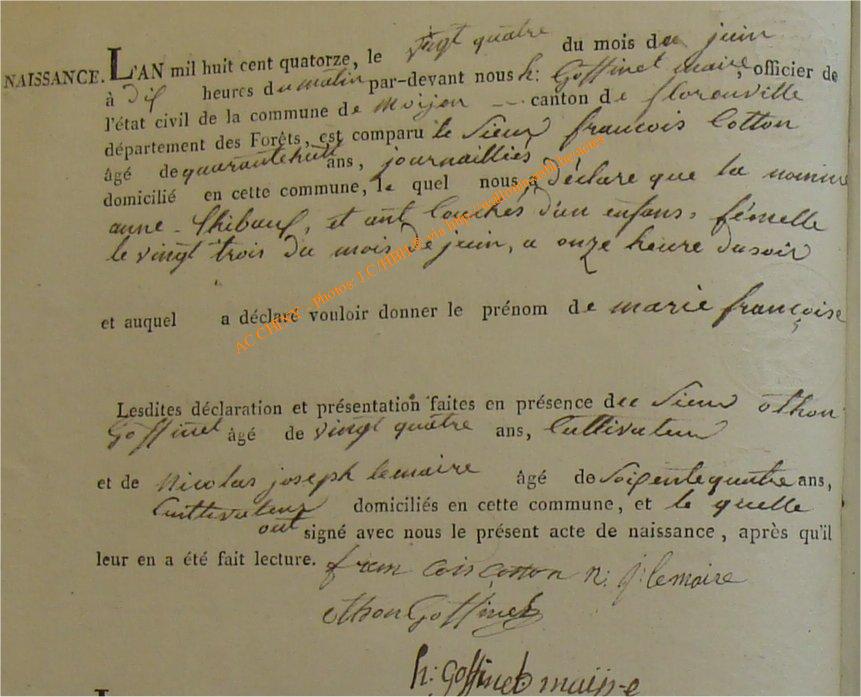 NAISSANCE. L'AN mil huit cent quatorze, le vingt quatre du mois de juin
à dix heures du matin par-devant nous h: Goffinet maire, officier de
l'état civil de la commune de Moyen canton de florenville
département des Forêts, est comparu le Sieur francois Cotton
âgé de quarantehuit ans, journaillies
domicilié en cette commune, le quel nous a déclare que la nommée
anne Thibaut, et ant Couchés d'un enfans, fémelle
le vingt trois du mois de juin, a onze heure du soir
et auquel a déclaré vouloir donner le prénom de marie françoise
Lesdites déclaration et présentation faites en présence du Sieur othon
Goffinet âgé de vingt quatre ans, Cultivateur
et de Nicolas joseph lemaire âgé de Soixentequatre ans,
Cultivateur domiciliés en cette commune, et le quelle
ont signé avec nous le présent acte de naissance, après qu'il
leur en a été fait lecture. francois cotton n: j: lemaire
othon Goffinet
h: goffinet
AC CHINY - Photos: J.C/HBH